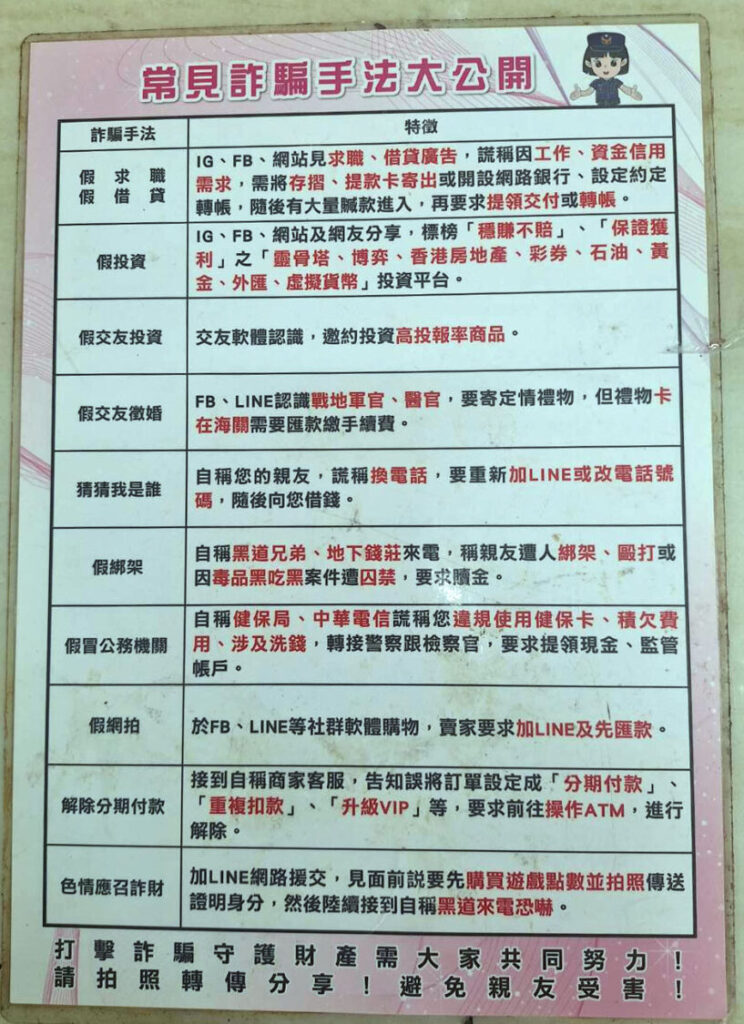 常見詐騙手法大公開
詐騙手法
特徵
假求職
假借貸
IG、FB、網站見求職、借貸廣告，謊稱因工作、資金信用
需求，需將存摺、提款卡寄出或開設網路銀行、設定約定
轉帳，隨後有大量贓款進入，再要求提領交付或轉帳。
假投資
IG、FB、網站及網友分享，標榜「穩賺不賠」、「保證獲
利」之「靈骨塔、博弈、香港房地產、彩券、石油、黃
金、外匯、虛擬貨幣」投資平台。
假交友投資
交友軟體認識，邀約投資高投報率商品。
假交友徵婚
FB、LINE認識戰地軍官、醫官，要寄定情禮物，但禮物卡
在海關需要匯款繳手續費。
猜猜我是誰
自稱您的親友，謊稱換電話，要重新加LINE或改電話號
碼，隨後向您借錢。
假綁架
自稱黑道兄弟、地下錢莊來電，稱親友遭人綁架、毆打或
因毒品黑吃黑案件遭囚禁，要求贖金。
假冒公務機關
自稱健保局、中華電信謊稱您違規使用健保卡、積欠費
用、涉及洗錢，轉接警察跟檢察官，要求提領現金、監管
帳戶。
假網拍
於FB、LINE等社群軟體購物，賣家要求加LINE及先匯款。
解除分期付款
接到自稱商家客服，告知誤將訂單設定成「分期付款」、
「重複扣款」、「升級VIP」等，要求前往操作ATM，進行
解除。
色情應召詐財
加LINE網路援交，見面前說要先購買遊戲點數並拍照傳送
證明身分，然後陸續接到自稱黑道來電恐嚇。
打擊詐騙守護財產需大家共同努力！
請拍照轉傳分享！避免親友受害！